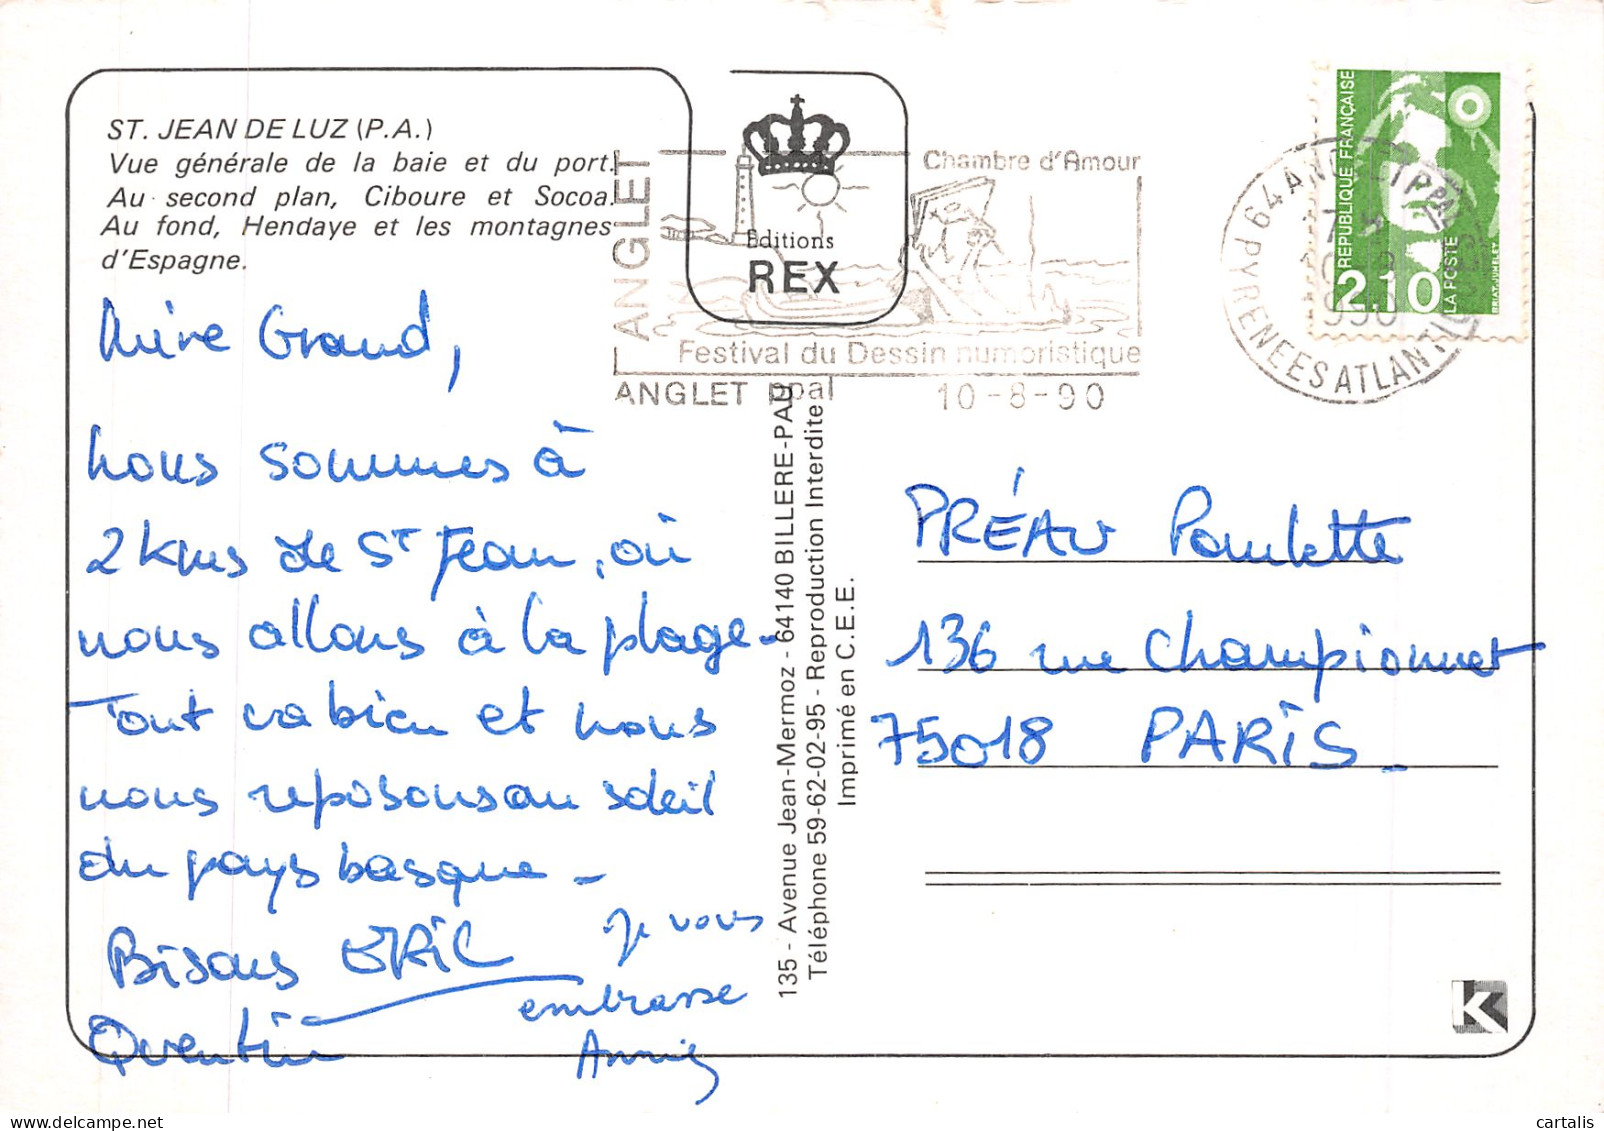 ST. JEAN DE LUZ (P.A.)
Vue générale de la baie et du port.
Au second plan, Ciboure et Socoa.
Au fond, Hendaye et les montagnes
d'Espagne.
Editions
REX
ANGLET
Chambre d'Amour
Festival du Dessin humoristique
ANGLET ppal
10-8-90
64 ANGLET PPAL
PYRENEES ATLANTIQUES
1990
REPUBLIQUE FRANÇAISE
2,10
LA POSTE
Mère Grand,
nous sommes à
2 kms de St Jean, où
nous allons à la plage-
Tout va bien et nous
nous reposons au soleil
du pays basque -
Bisous ERIC
Quentin
Je vous
embrasse
Annie
135 - Avenue Jean-Mermoz - 64140 BILLERE-PAU
Téléphone 59-62-02-95 - Reproduction Interdite
Imprimé en C.E.E.
PRÉAU Paulette
136 rue Championnet
75018 PARIS -
K
cartalis